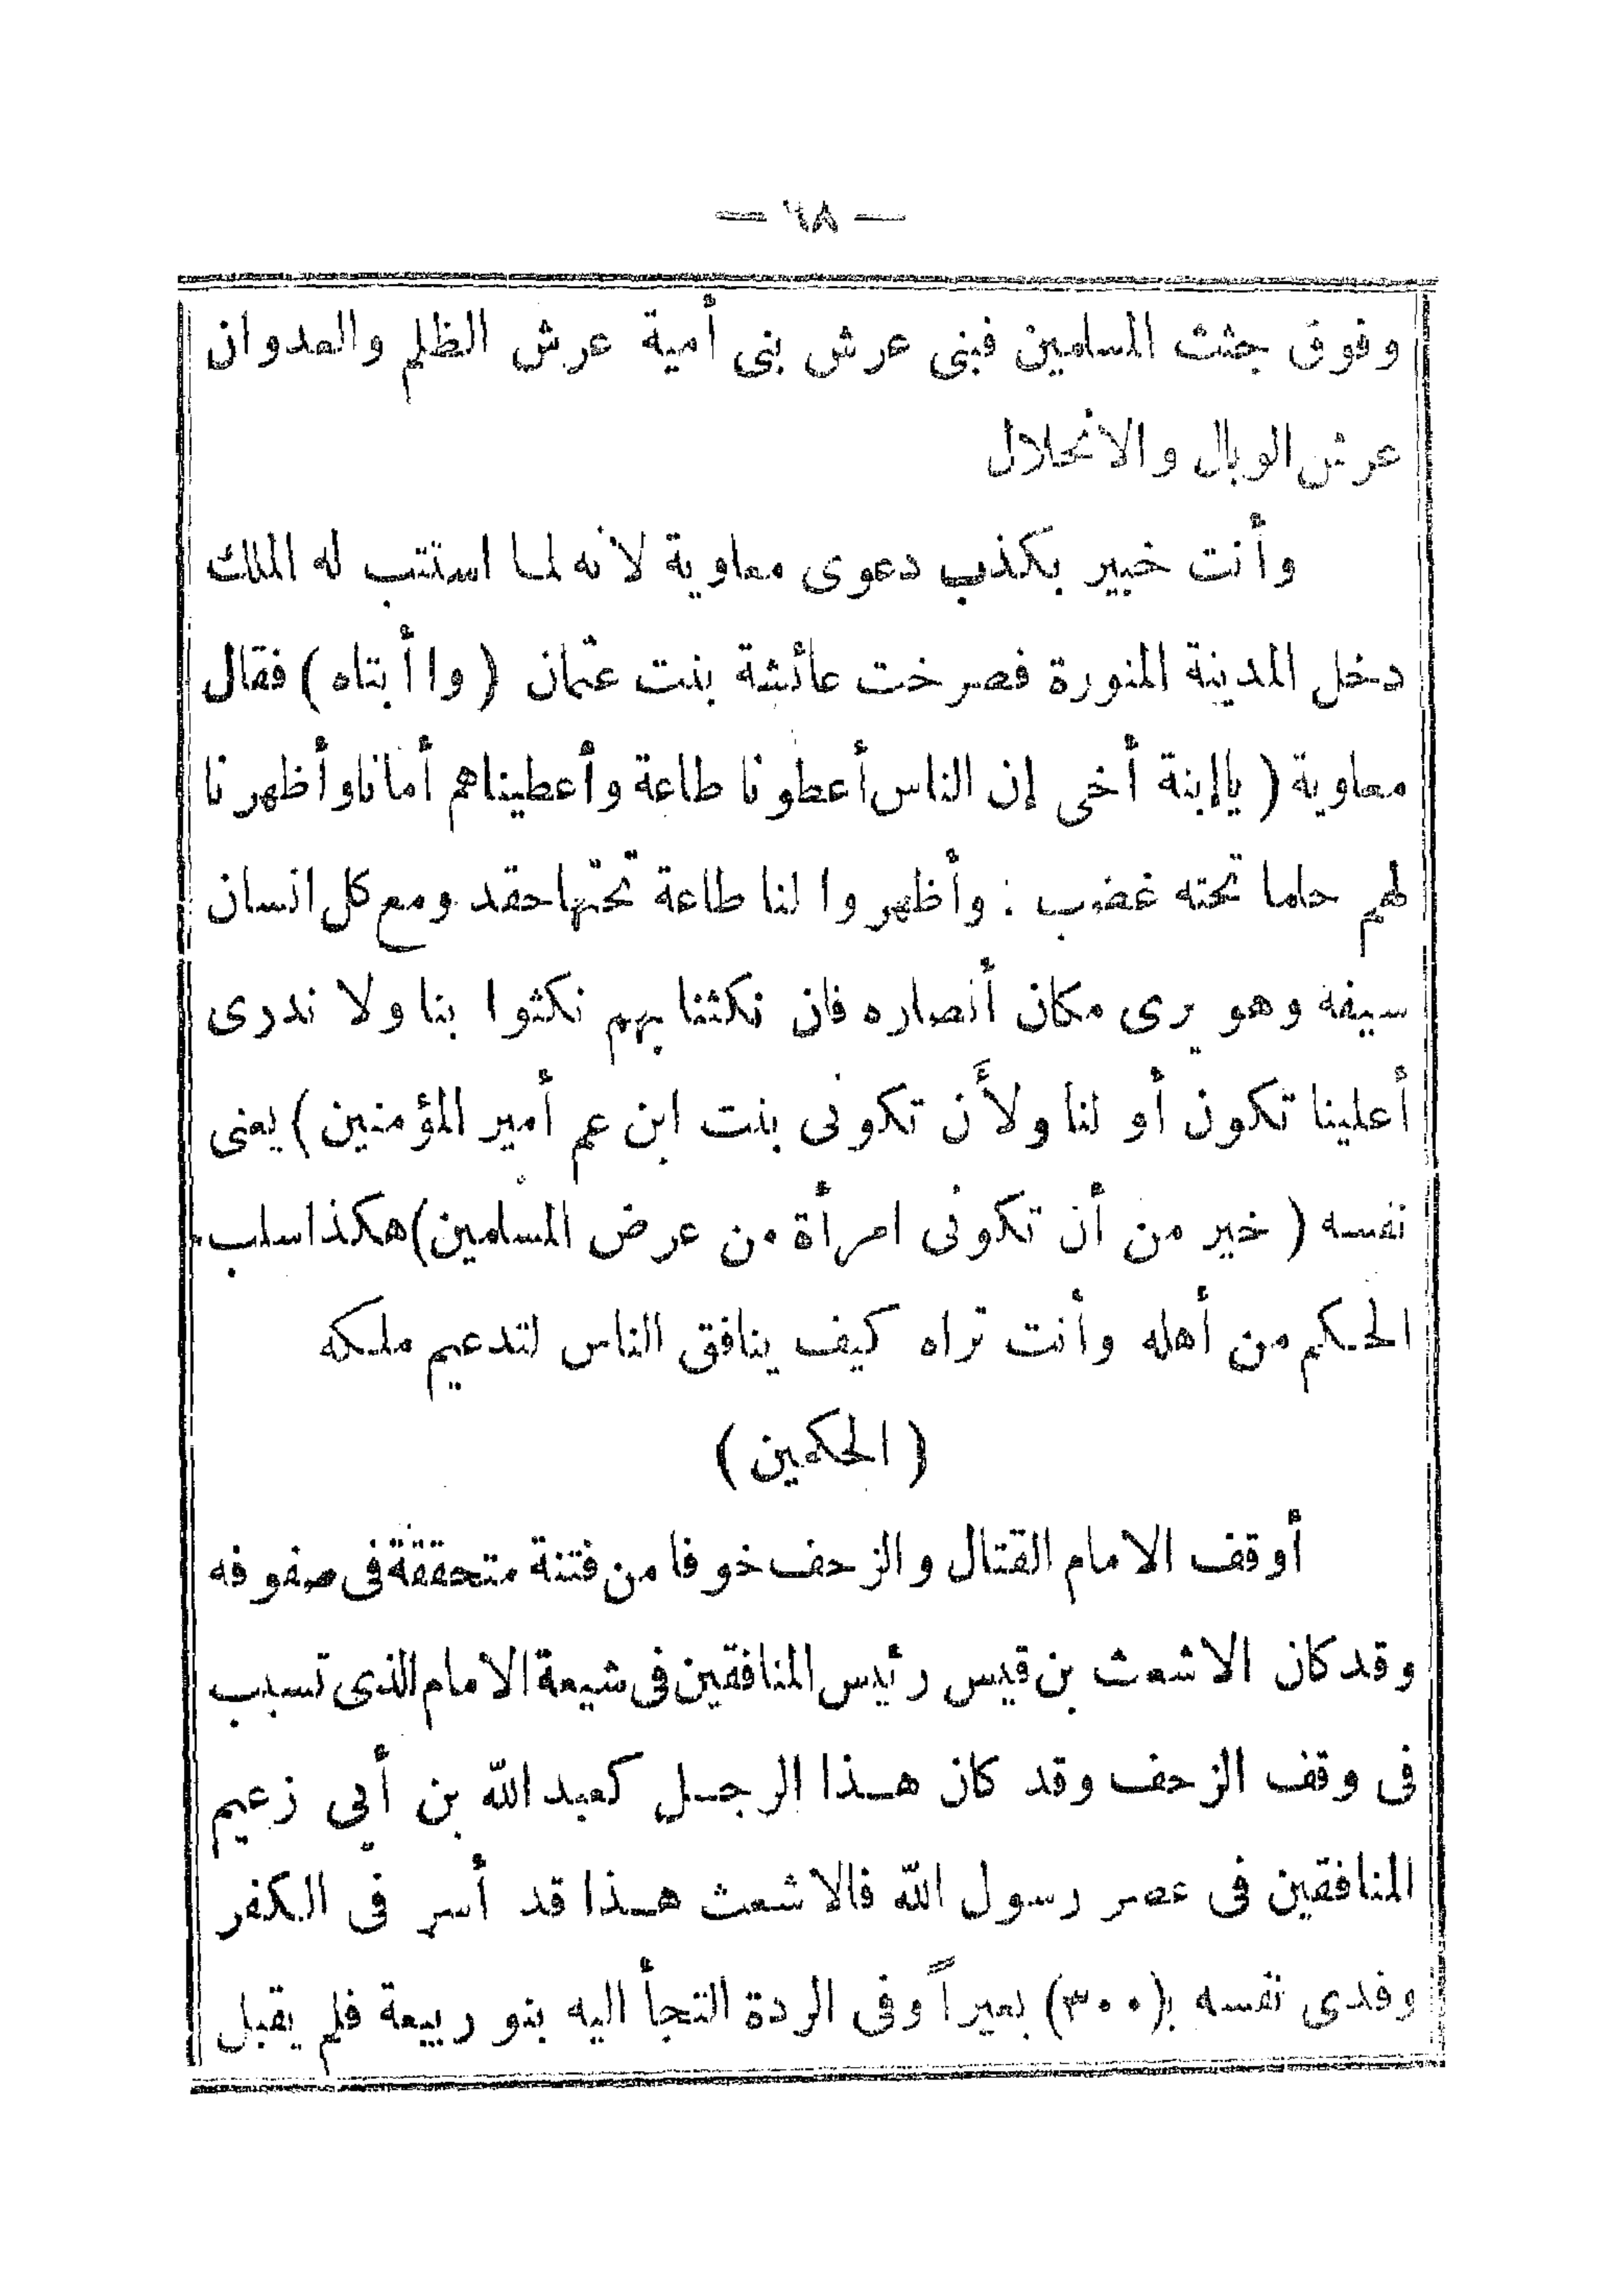 — ٦٨ —
وفوق جثث المسلمين فبنى عرش بنى أمية عرش الظلم والعدوان
عرش الوبال والانحلال
وأنت خبير بكذب دعوى معاوية لانه لما استتب له الملك
دخل المدينة المنورة فصرخت عائشة بنت عثمان ( وا أبتاه ) فقال
معاوية ( ياإبنة أخى إن الناس أعطونا طاعة وأعطيناهم أمانا وأظهرنا
لهم حلما تحته غضب : وأظهروا لنا طاعة تحتها حقد ومع كل انسان
سيفه وهو يرى مكان أنصاره فان نكثنا بهم نكثوا بنا ولا ندرى
أعلينا تكون أو لنا ولأَن تكونى بنت ابن عم أمير المؤمنين ) يعنى
نفسه ( خير من أن تكونى امرأة من عرض المسلمين) هكذا سلب
الحكم من أهله وأنت تراه كيف ينافق الناس لتدعيم ملكه
( الحكمين )
أوقف الامام القتال والزحف خوفا من فتنة متحققة فى صفوفه
وقد كان الاشعث بن قيس رئيس المنافقين فى شيعة الامام الذى تسبب
فى وقف الزحف وقد كان هـذا الرجـل كعبد الله بن أبي زعيم
المنافقين فى عصر رسول الله فالاشعث هـذا قد أسر فى الكفر
وفدى نفسه بـ(٣٠٠) بعيراً وفى الردة التجأ اليه بنو ربيعة فلم يقبل